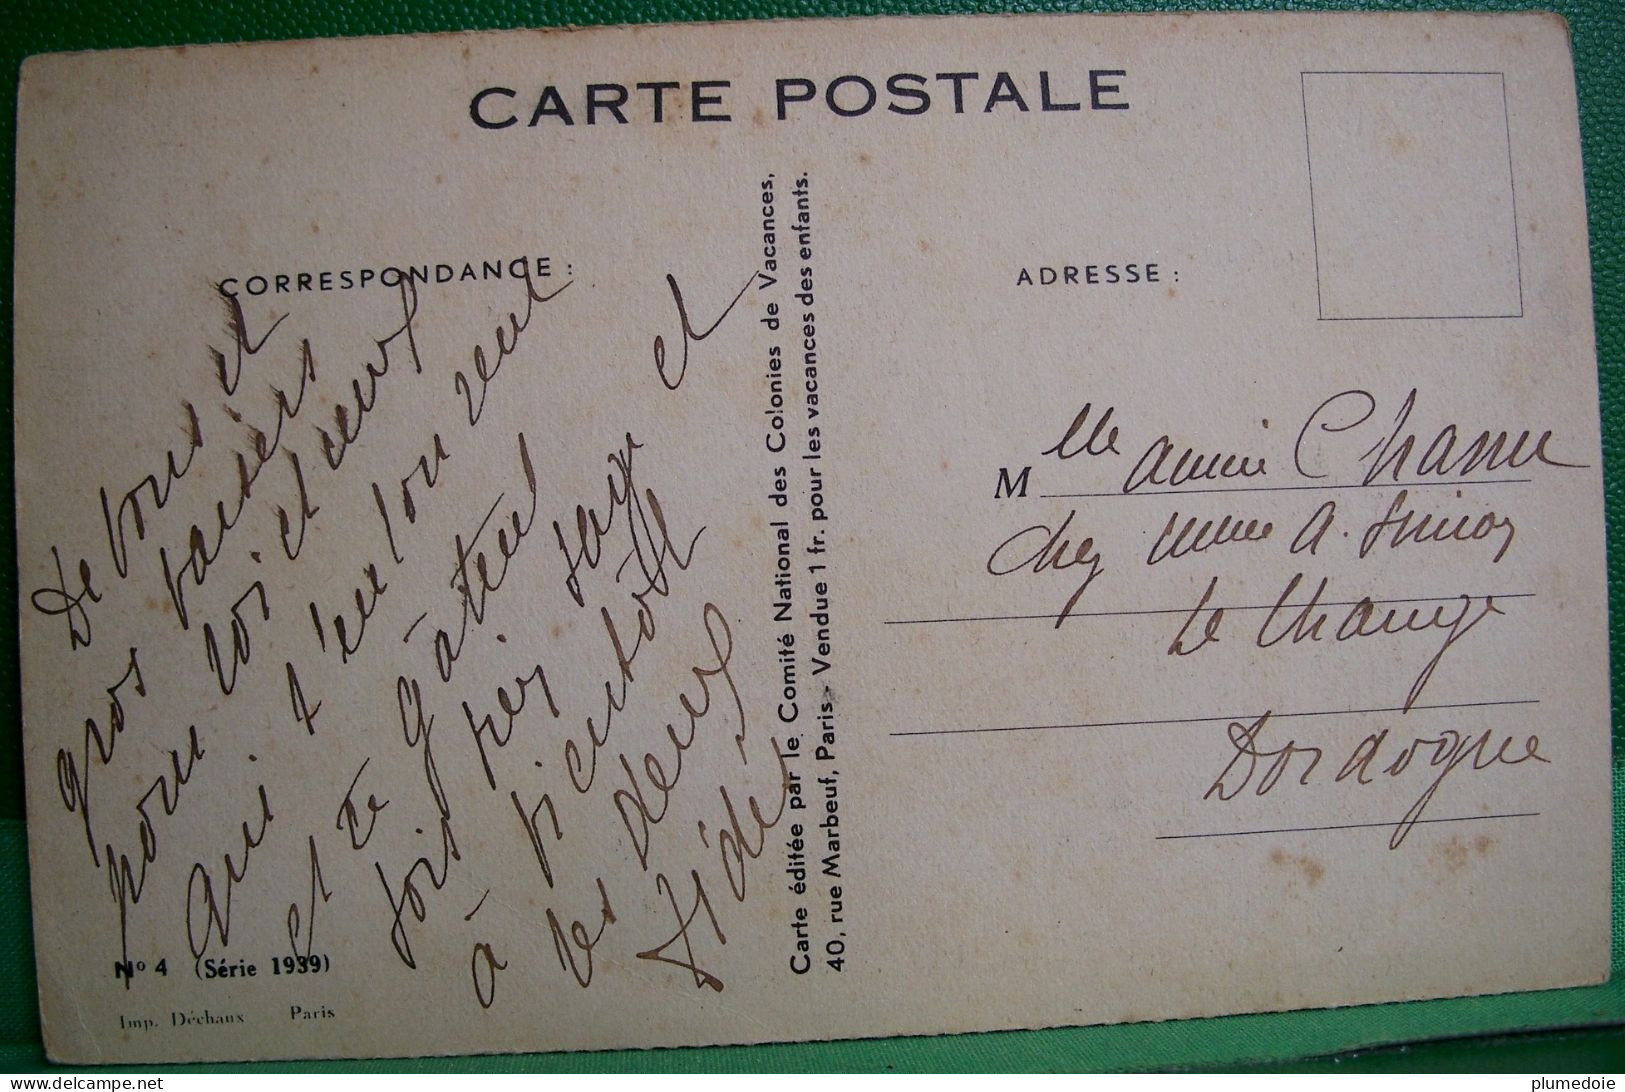 CARTE POSTALE
CORRESPONDANCE :
De bons et
gros baisers
pour toi et ceux
qui t'entourent
et te gâtent
sois très sage et
à bientôt
les deux
N° 4 (Série 1939)
Imp. Déchaux Paris
Carte éditée par le Comité National des Colonies de Vacances,
40, rue Marbeuf, Paris - Vendue 1 fr. pour les vacances des enfants.
ADRESSE :
Mlle Annie
chez Mme A. Simon
Le Change
Dordogne
plumedoie